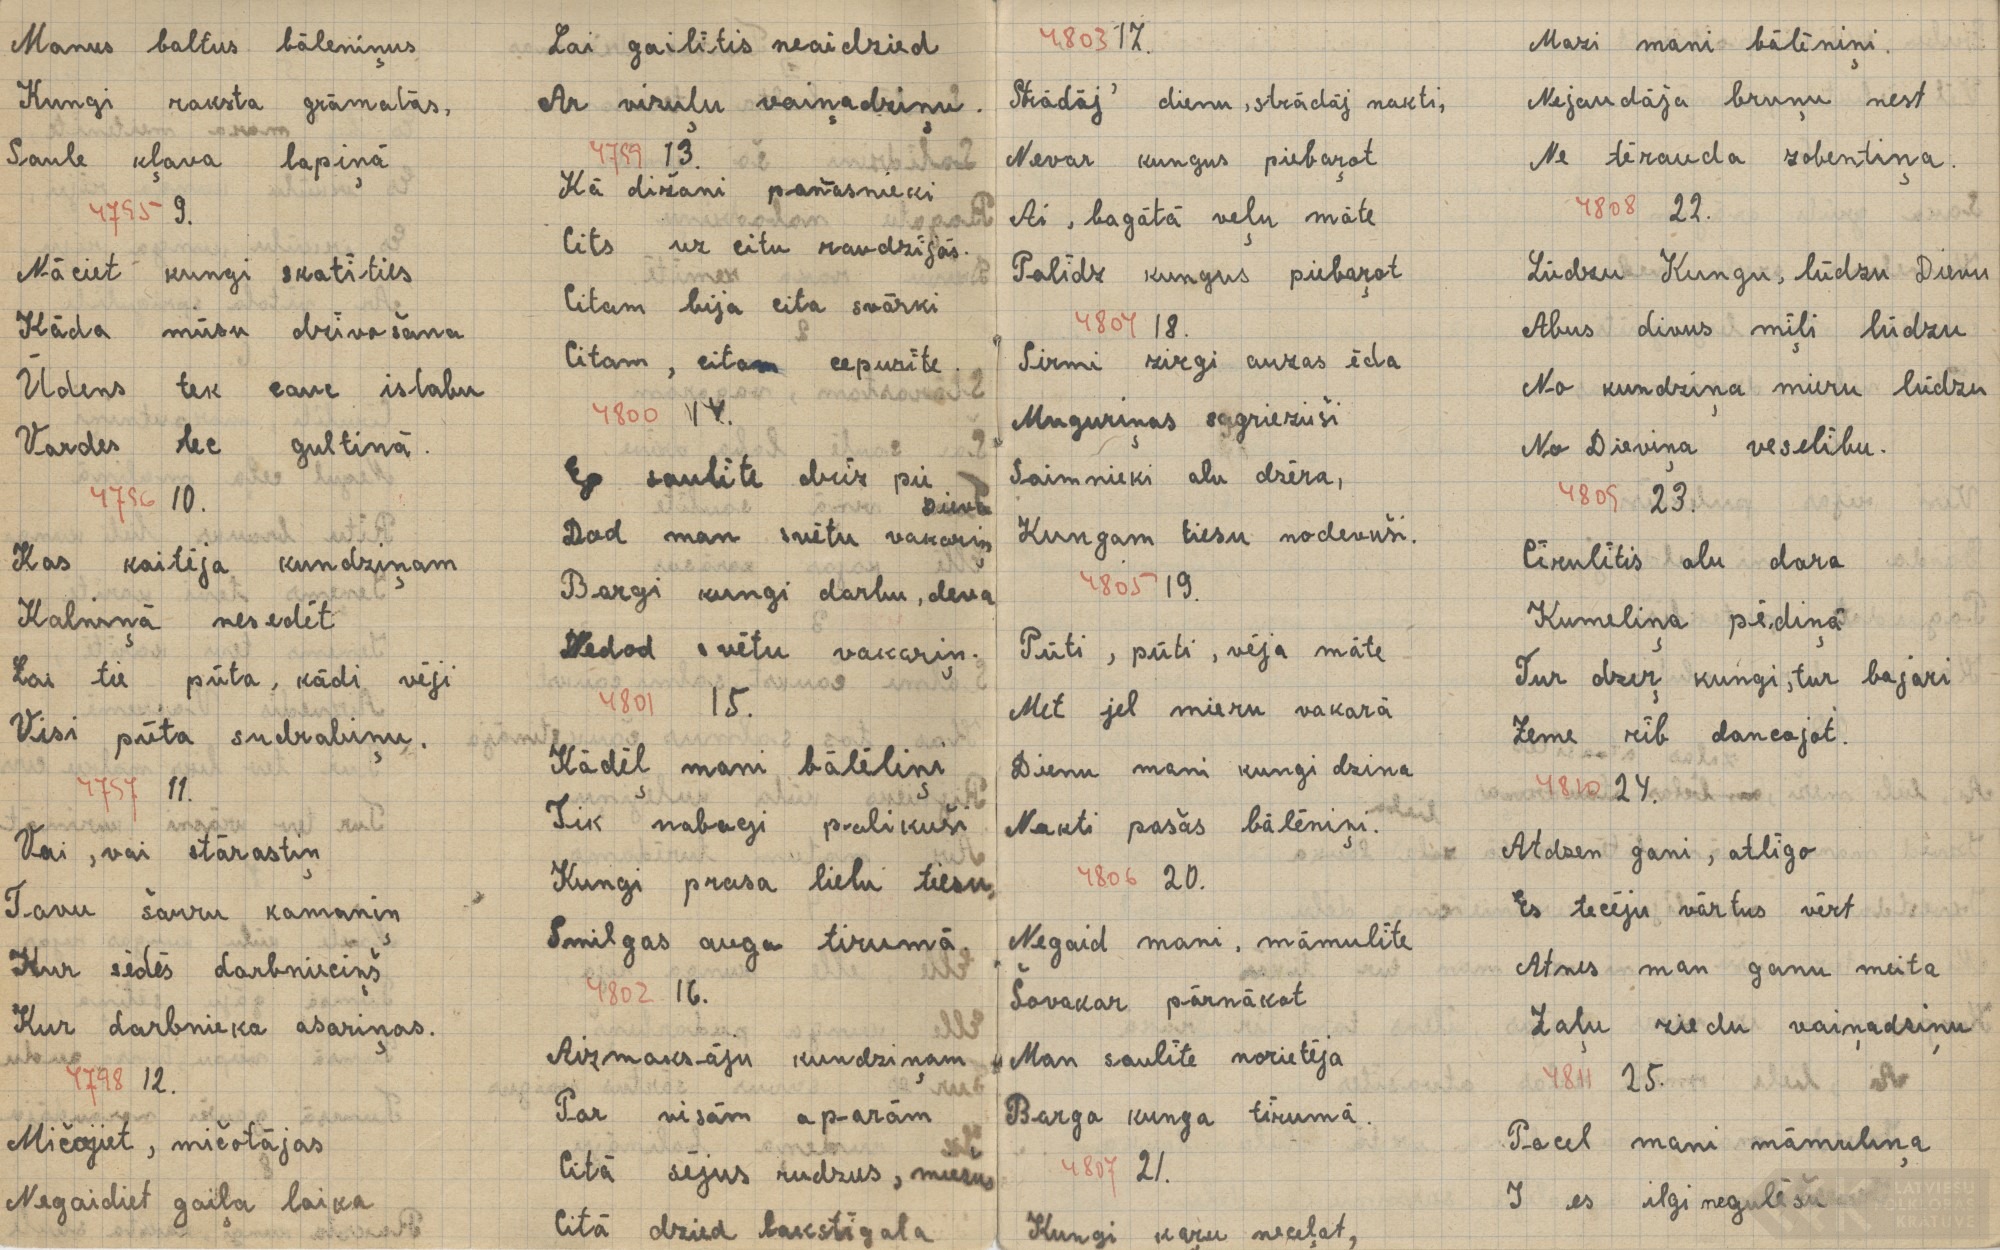 Manus baltus bāleniņus
Kungi raksta grāmatās,
Saule kļava lapiņā
4795 9.
Nāciet kungi skatīties
Kāda mūsu dzīvošana
Ūdens tek caur istabu
Vardes lec gultiņā.
4796 10.
Kas kaitēja kundziņam
Kalniņā nesedēt
Lai tie pūta, kādi vēji
Visi pūta sudrabiņu.
4797 11.
Vai, vai stārastiņ
Tavu šauru kamaniņ
Kur sēdēs darbnieciņš
Kur darbnieka asariņas.
4798 12.
Mičojiet, mičotājas
Negaidiet gaiļa laika
Lai gailītis neaidzied
Ar vizuļu vaiņadziņu.
4799 13.
Kā dižani pañasnieki
Cits uz citu raudzījās.
Citam bija cita svārki
Citam, citam cepurīte.
4800 14.
Ej saulīte drīz pie
Dieva
Dod man svētu vakariņ
Bargi kungi darbu, deva
Nedod svētu vakariņ.
4801 15.
Kādēļ mani bālēliņi
Tik nabagi palikuši
Kungi prasa lielu tiesu,
Smilgas auga tīrumā.
4802 16.
Aizmaksāju kundziņam
Par visām aparām
Citā sējus rudzus, miežus
Citā dzied lakstīgala
4803 17.
Strādāj' dienu, strādāj nakti,
Nevar kungus piebaŗot
Ai, bagātā veļu māte
Palīdz kungus piebaŗot
4804 18.
Sirmi zirgi auzas ēda
Muguriņas sagriezuši
Saimnieki alu dzēra,
Kungam tiesu nodevuši.
4805 19.
Pūti, pūti, vēja māte
Met jel mieru vakarā
Dienu mani kungi dzina
Nakti pašas bālēniņi.
4806 20.
Negaid mani, māmulīte
Šovakar pārnākot
Man saulīte norietēja
Barga kunga tīrumā.
4807 21.
Kungi kaŗu neceļat,
Mazi mani bālēniņi.
Nejaudāja bruņu nest
Ne tērauda zobentiņa.
4808 22.
Lūdzu Kungu, lūdzu Dievu
Abus divus mīļi lūdzu
No kundziņa mieru lūdzu
No Dieviņa veselību.
4809 23.
Cīrulītis alu dara
Kumeliņa pēdiņā
Tur dzeŗ kungi, tur bajāri
Zeme rīb dancojot.
4810 24.
Atdzen gani, atlīgo
Es tecēju vārtus vērt
Atnes man ganu meita
Zaļu ziedu vaiņadziņu
4811 25.
Pacel mani māmuliņa
I es ilgi negulēšu
LATVIEŠU
FOLKLORAS
KRĀTUVE